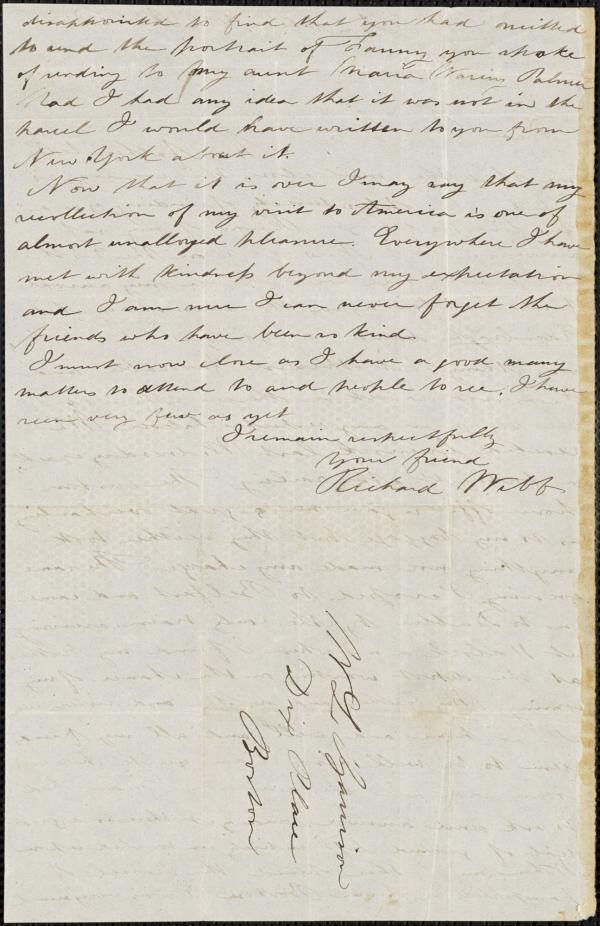 disappointed to find that you had omitted
to send the portrait of Fanny you spoke
of sending to my aunt (Maria Waring Palmer
Had I had any idea that it was not in the
parcel I would have written to you from
New York about it.
Now that it is over I may say that my
recollection of my visit to America is one of
almost unalloyed pleasure. Everywhere I have
met with kindness beyond my expectation
and I am sure I can never forget the
friends who have been so kind.
I must now close as I have a good many
matters to attend to and people to see, I have
seen very few as yet
I remain respectfully
your friend
Richard Webb
W L Garrison
Dix Place
Boston